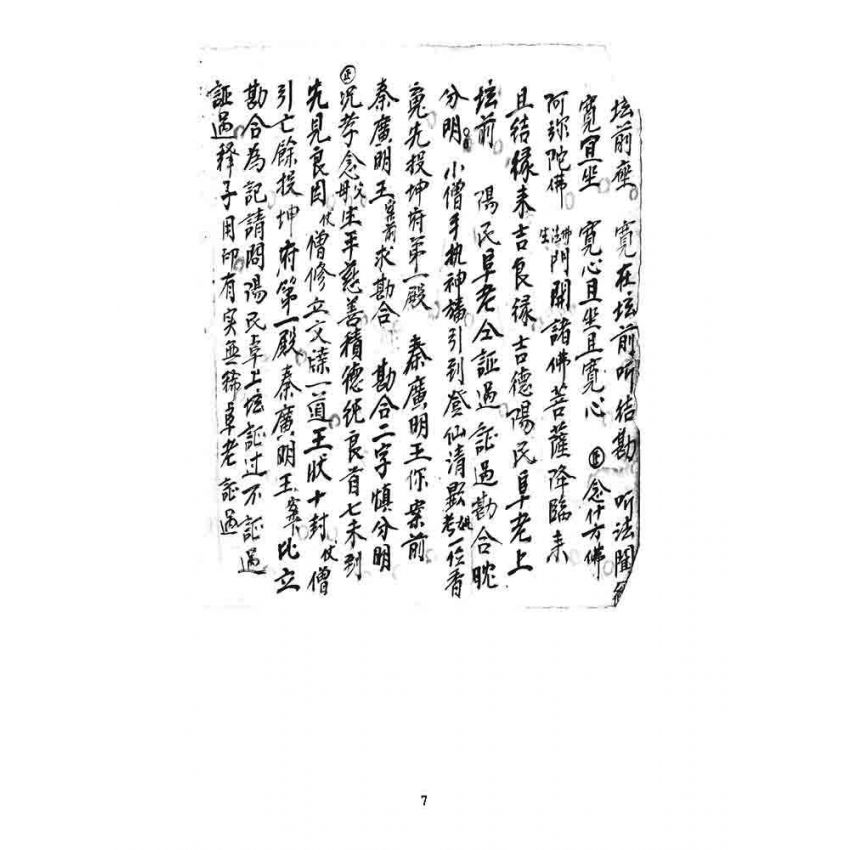 坛前座 寛在坛前听结勘 听法聞
寛宜坐 寛心且坐且寛心 念什方佛
阿弥陀佛 生 門開諸佛菩薩降臨来
且结缘来吉良缘 吉德陽民阜老上
坛前 陽民阜老仝証過 証過勘合晄
分明 小僧手执神旛引到登仙清 考妣一位香
寃先投坤府第一殿 秦廣明王作案前
秦廣明王案前求勘合 勘合二字慎分明
㊣况孝念父母生平慈善積德纯良首七未到
先見良因 仗僧修立文牒一道王状十封 仗僧
引亡餘投坤府第一殿秦廣明王案下比立
勘合為記請問陽民卓上坛証过不証過
証過释子用印有实無稀卓老証過
7